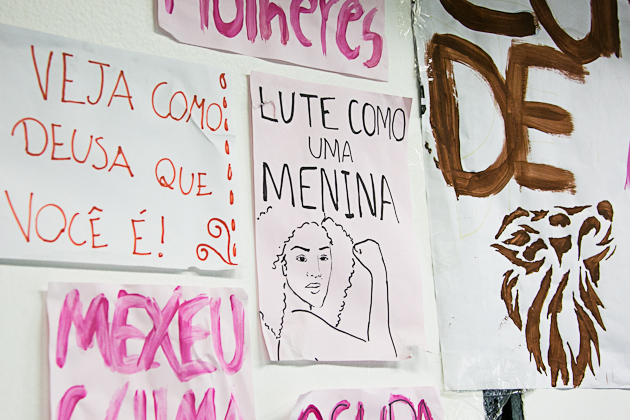 Mulheres
VEJA COMO
DEUSA QUE
VOCÊ É!
LUTE COMO
UMA
MENINA
DE
MEXEU
UMA
OCUPA